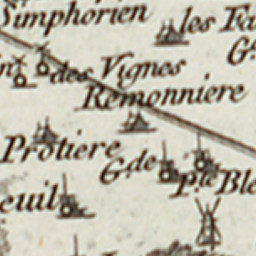 Simphorien
les Fa
G.
des Vignes
Remonniere
Protiere
G.de
p.te Ble
euil